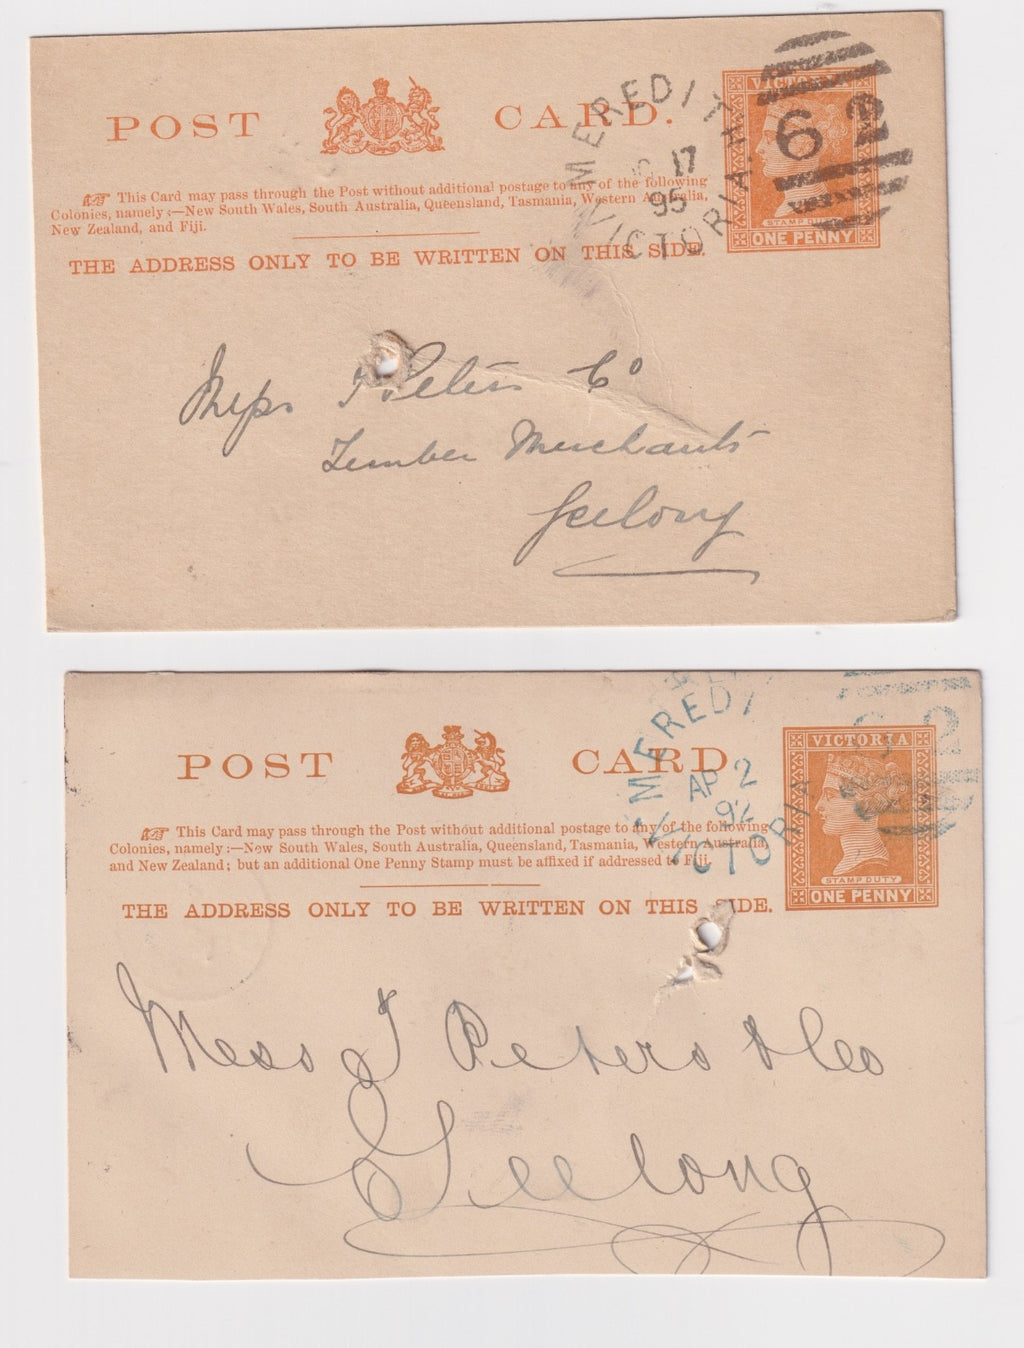 POST CARD.
☞ This Card may pass through the Post without additional postage to any of the following
Colonies, namely :—New South Wales, South Australia, Queensland, Tasmania, Western Australia,
New Zealand, and Fiji.
THE ADDRESS ONLY TO BE WRITTEN ON THIS SIDE.
MEREDITH
17
95
VICTORIA
62
VICTORIA
STAMP DUTY
ONE PENNY
Messrs J Peters Co
Timber Merchants
Geelong
POST CARD.
☞ This Card may pass through the Post without additional postage to any of the following
Colonies, namely :—New South Wales, South Australia, Queensland, Tasmania, Western Australia,
and New Zealand; but an additional One Penny Stamp must be affixed if addressed to Fiji.
THE ADDRESS ONLY TO BE WRITTEN ON THIS SIDE.
MEREDI
AP 2
92
VICTORIA
62
VICTORIA
STAMP DUTY
ONE PENNY
Mess J Peters & Co
Geelong